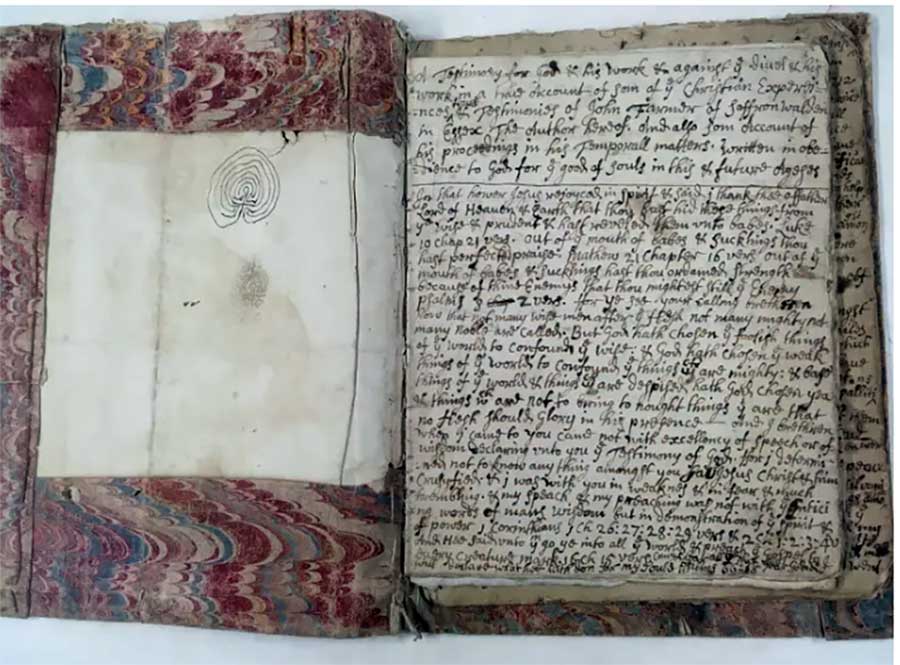 A Testimony for God & his work & against ye Divel & his
work in a true Account of som of ye Christian Experie-
nces & Testimonies of John Farmer of Saffronwalden
in Essex, The Author hereof. And also som Account of
his proceedings in his Temporall matters. Written in obe=
dience to God for ye good of souls in this & future Ageses
In that hower Jesus rejoyced in spirit & said i thank thee o father
Lord of Heaven & Earth that thou hast hid these things from
ye wise & prudent & hast reveled them unto babes. Luke
10 chap 21 vers. Out of ye mouth of babes & Sucklings thou
hast perfected praise. Mathew 21 Chapter 16 vers out of ye
mouth of babes & Sucklings hast thou ordained Strength
because of thine Enemys that thou mightest still ye Enemy
Psalms 8 2 vers. for ye see your Calling brethren
how that not many wise men after ye flesh not many mighty not
many noble are Called. But God hath chosen ye foolish things
of ye world to confound ye wise & God hath chosen ye weak
things of ye world to confound ye things yt are mighty: & base
things of ye world & things yt are despised hath God chosen yea
& things wch are not to bring to nought things yt are that
no flesh should Glory in his presence — and i brethren
when i came to you came not with excellency of speech or of
wisdom declaring unto you ye Testimony of God. for i determi
ned not to know any thing amongst you Jesus Christ & him
Crucified & i was with you in weaknes & in fear & much
trembling. & my speach & my preaching was not with intici
ng words of mans wisdom but in demonstration of ye spirit &
of power 1 Corinthians 1 Ch 26: 27: 28: 29 vers & 2 Ch 1: 2: 3: 4 v
And Hee said unto ym go ye into all ye world & preach ye Gospel to
every creature mark 16 Ch 15 vers